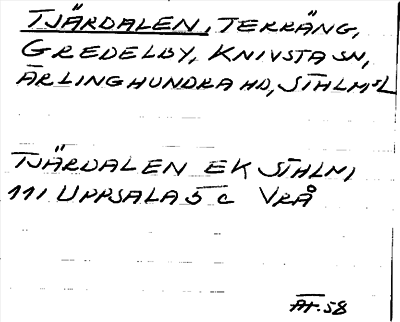 TJÄRDALEN, TERRÄNG,
GREDELBY, KNIVSTA SN,
ÄRLINGHUNDRA HD, STHLMSL
TJÄRDALEN EK STHLM,
111 UPPSALA 5 C VRÅ
AT.58